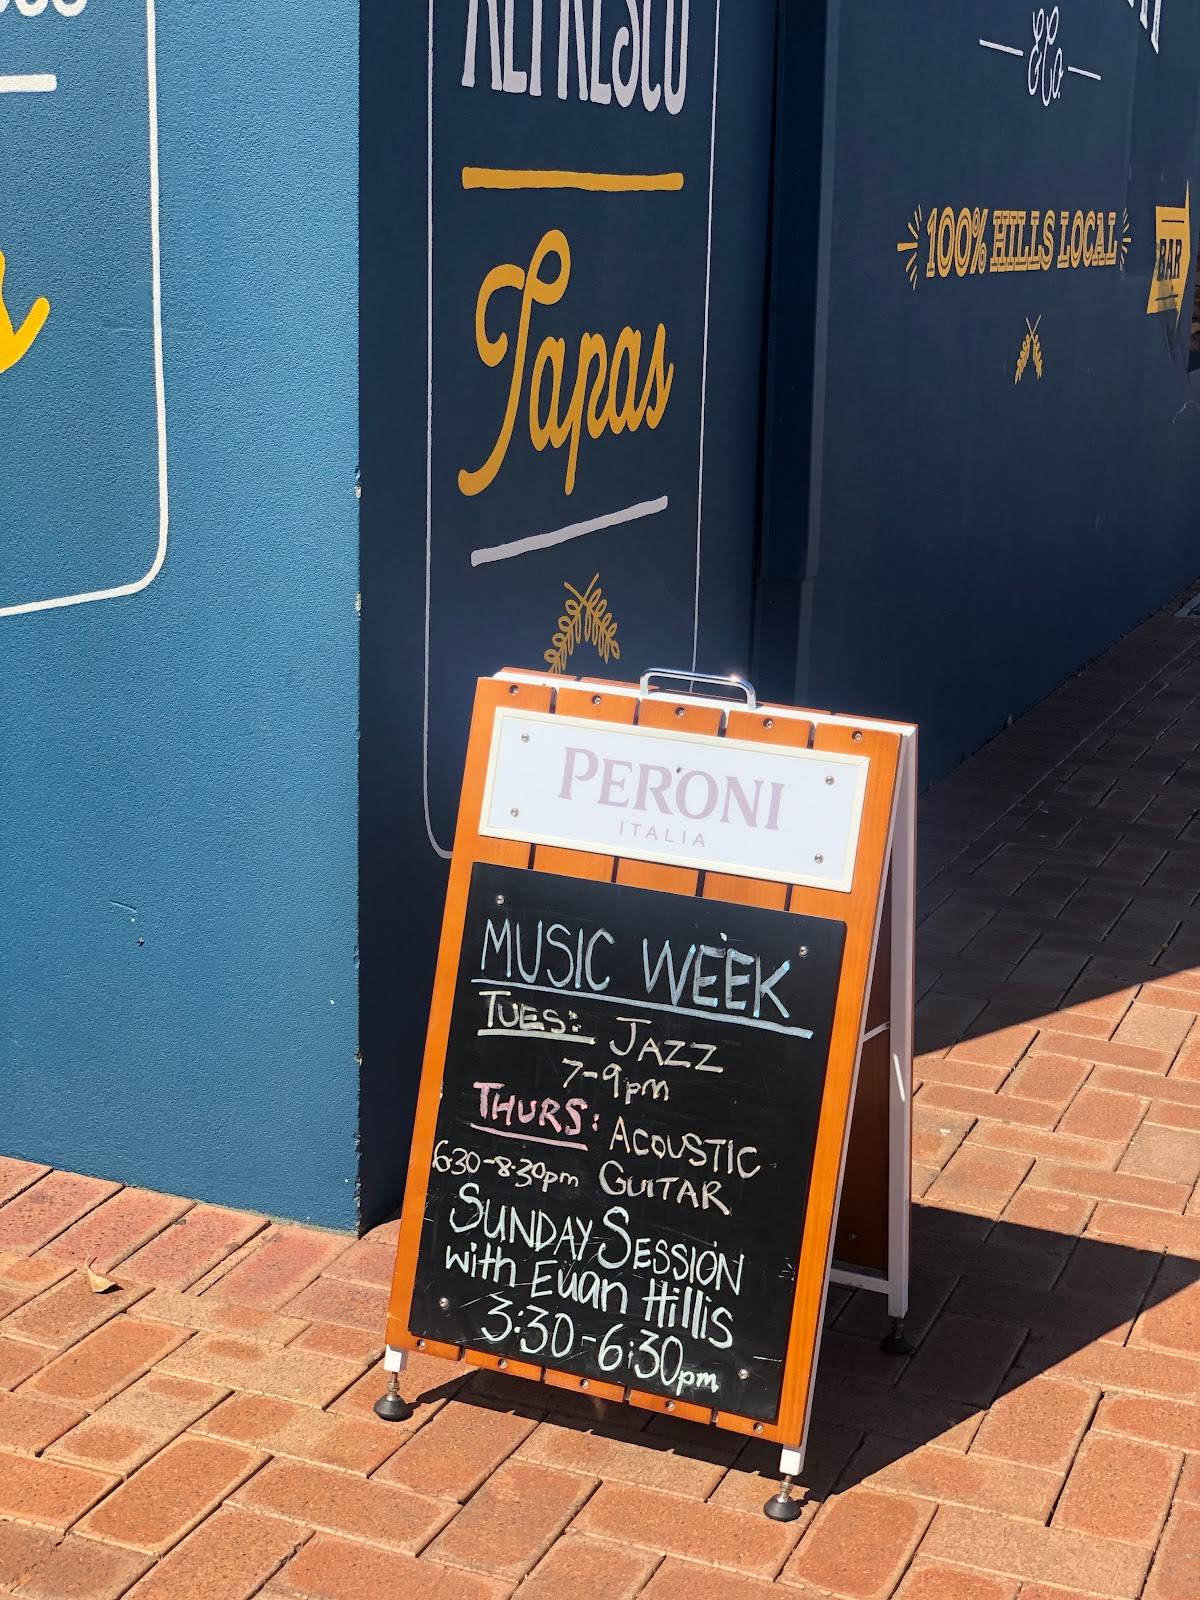 REFRESCO
Tapas
& Co.
100% HILLS LOCAL
BAR
PERONI
ITALIA
MUSIC WEEK
TUES: JAZZ
7-9pm
THURS: ACOUSTIC
6:30-8:30pm GUITAR
SUNDAY SESSION
with Euan Hillis
3:30-6:30pm